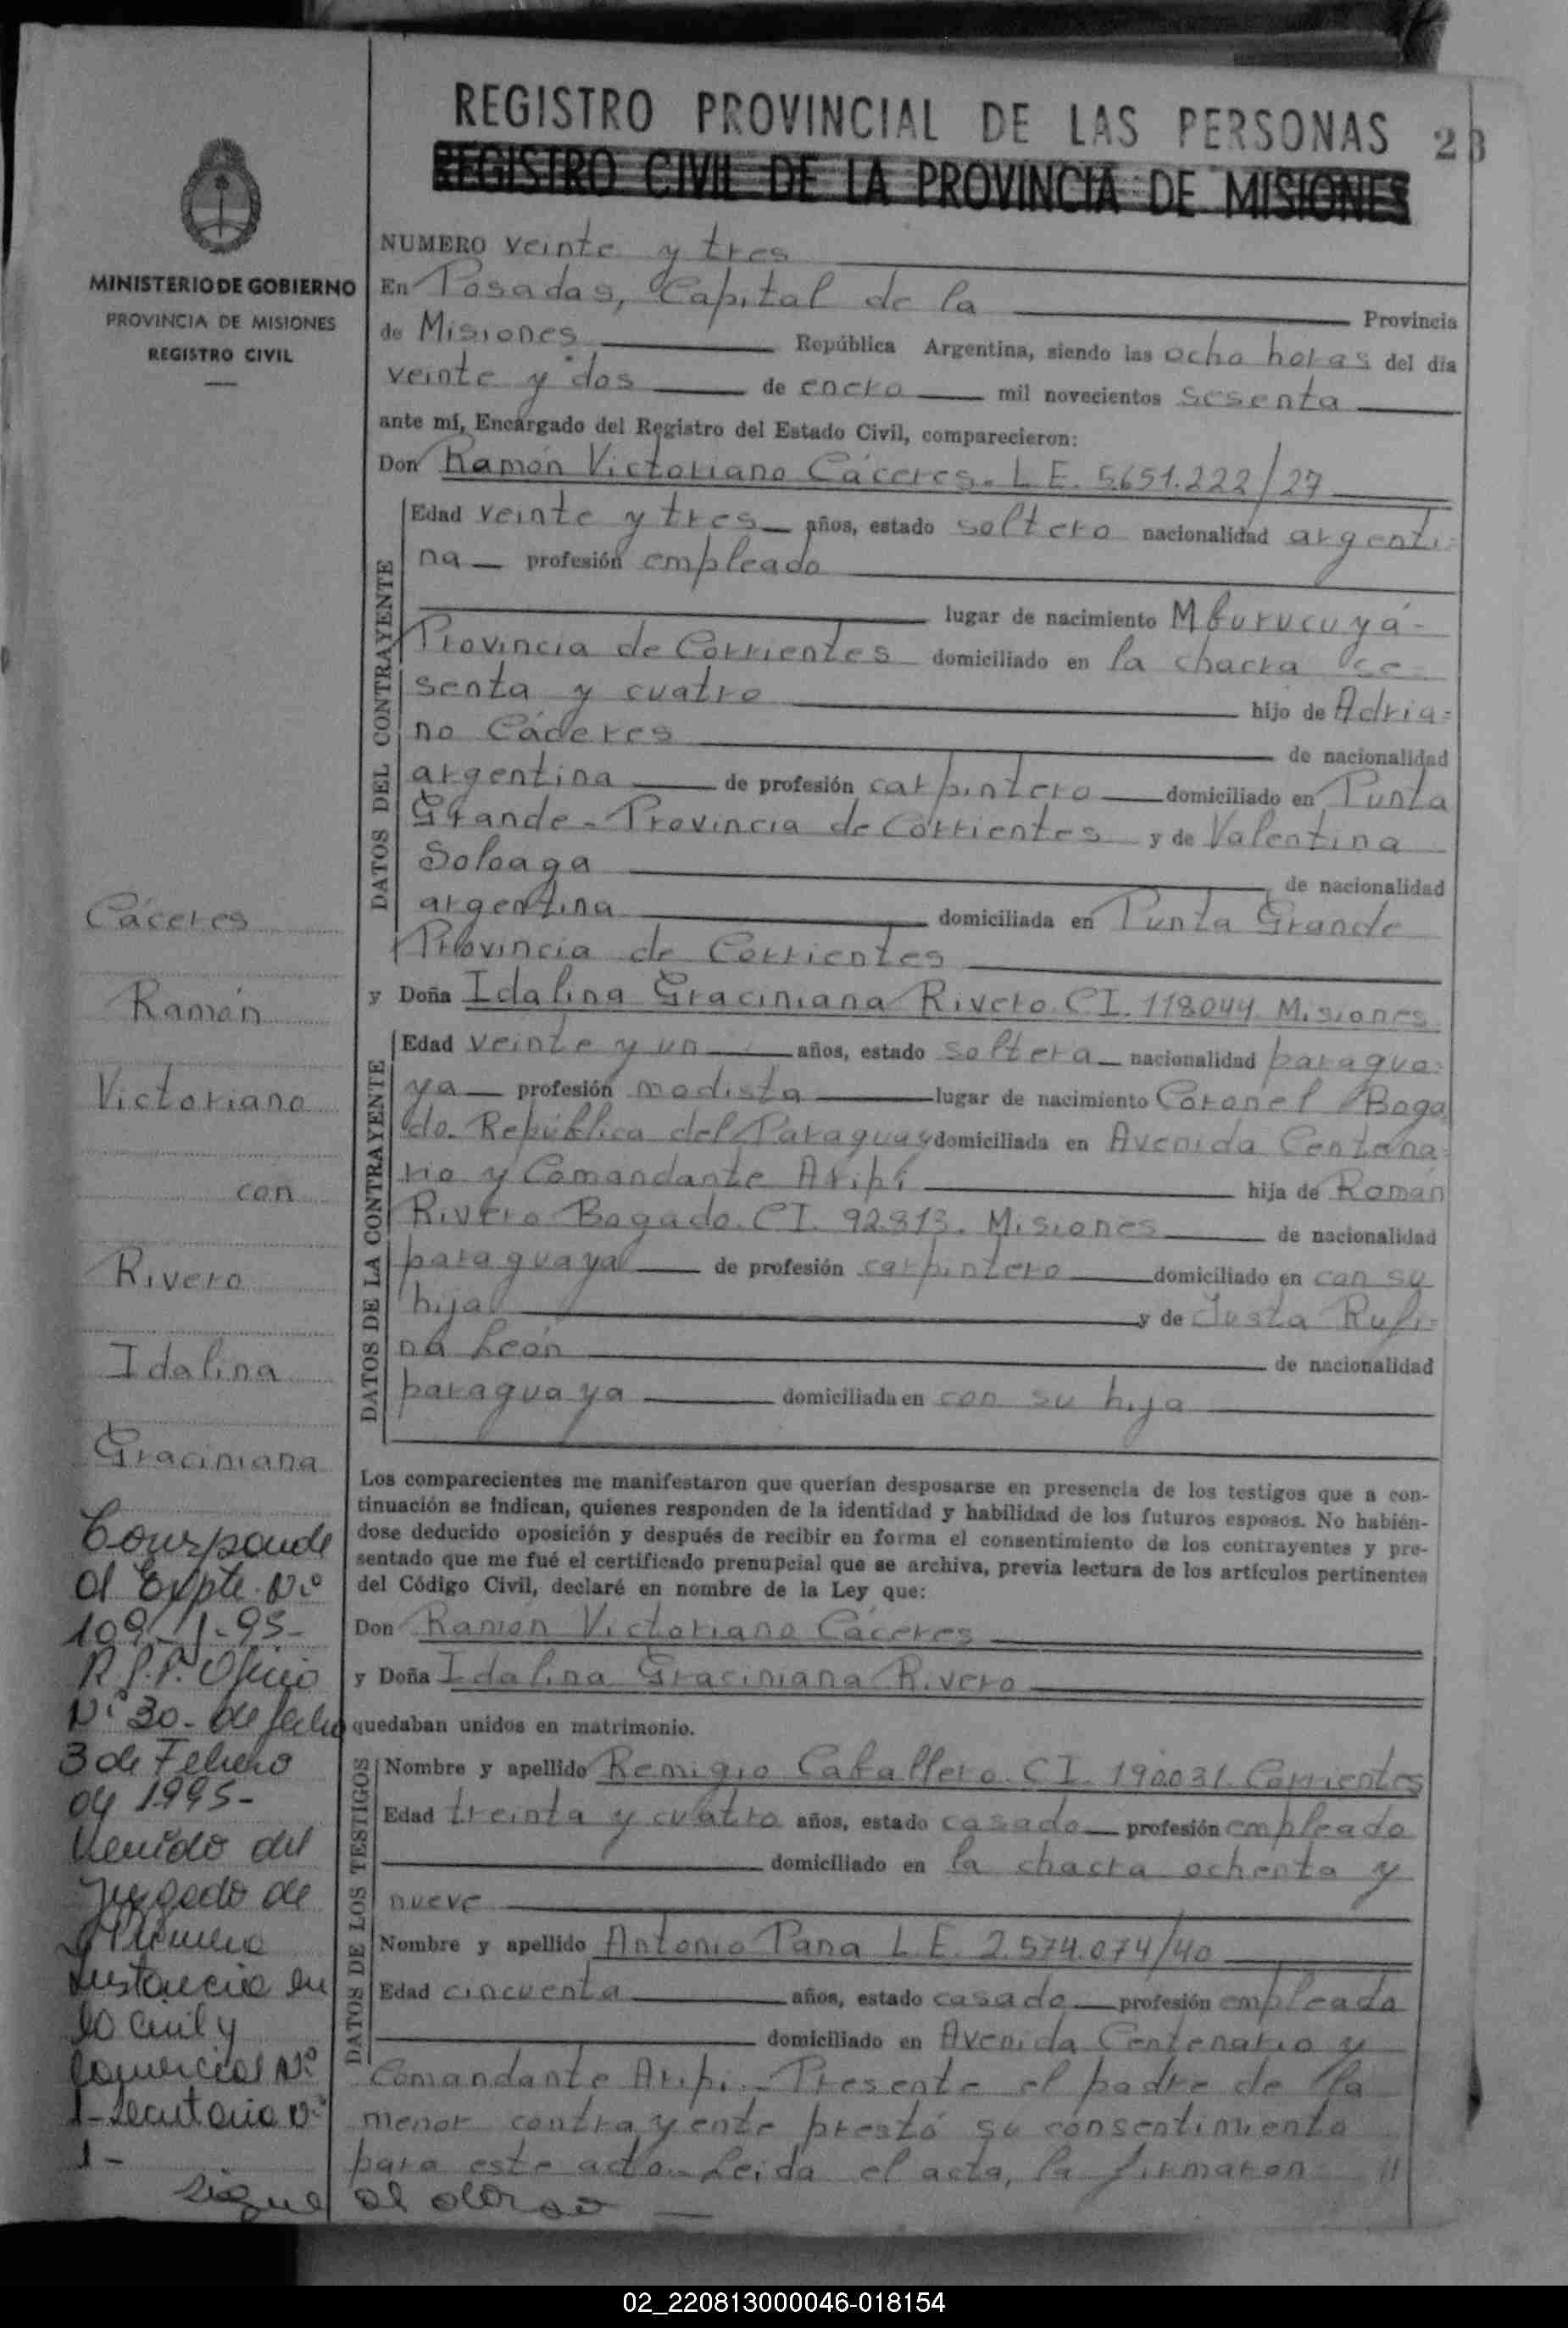 REGISTRO PROVINCIAL DE LAS PERSONAS 23
REGISTRO CIVIL DE LA PROVINCIA DE MISIONES
MINISTERIO DE GOBIERNO
PROVINCIA DE MISIONES
REGISTRO CIVIL
NUMERO veinte y tres
En Posadas, Capital de la Provincia
de Misiones República Argentina, siendo las ocho horas del día
veinte y dos de enero mil novecientos sesenta
ante mí, Encargado del Registro del Estado Civil, comparecieron:
Don Ramón Victoriano Cáceres. L E. 5651.222/27
DATOS DEL CONTRAYENTE
Edad veinte y tres años, estado soltero nacionalidad argenti=
na profesión empleado
lugar de nacimiento Mburucuyá-
Provincia de Corrientes domiciliado en la chacra se
senta y cuatro hijo de Adria=
no Cáceres de nacionalidad
argentina de profesión carpintero domiciliado en Punta
Grande - Provincia de Corrientes y de Valentina
Soloaga de nacionalidad
argentina domiciliada en Punta Grande
Provincia de Corrientes
y Doña Idalina Graciniana Rivero. CI. 118044. Misiones
DATOS DE LA CONTRAYENTE
Edad veinte y un años, estado soltera nacionalidad paragua=
ya profesión modista lugar de nacimiento Coronel Boga
do. República del Paraguay domiciliada en Avenida Centena=
rio y Comandante Aripí hija de Román
Rivero Bogado. CI. 92.313. Misiones de nacionalidad
paraguaya de profesión carpintero domiciliado en con su
hija y de Justa Rufi=
na León de nacionalidad
paraguaya domiciliada en con su hija
Los comparecientes me manifestaron que querían desposarse en presencia de los testigos que a con-
tinuación se indican, quienes responden de la identidad y habilidad de los futuros esposos. No habién-
dose deducido oposición y después de recibir en forma el consentimiento de los contrayentes y pre-
sentado que me fué el certificado prenupcial que se archiva, previa lectura de los artículos pertinentes
del Código Civil, declaré en nombre de la Ley que:
Don Ramón Victoriano Cáceres
y Doña Idalina Graciniana Rivero
quedaban unidos en matrimonio.
DATOS DE LOS TESTIGOS
Nombre y apellido Remigio Caballero. CI. 190031. Corrientes
Edad treinta y cuatro años, estado casado profesión empleado
domiciliado en la chacra ochenta y
nueve
Nombre y apellido Antonio Pana L.E. 2.574.074/40
Edad cincuenta años, estado casado profesión empleado
domiciliado en Avenida Centenario y
Comandante Aripí.- Presente el padre de la
menor contrayente prestó su consentimiento
para este acto. Leída el acta, la firmaron //
Cáceres
Ramón
Victoriano
con
Rivero
Idalina
Graciniana
Corresponde
al Expte. Nº
109-1-95-
R.P.P. Oficio
Nº 30- de fecha
3 de Febrero
de 1995-
Venido del
Juzgado de
Primera
Instancia en
lo Civil y
Comercial Nº
1- Secretaria Nº
1-
Sigue al dorso
02_220813000046-018154